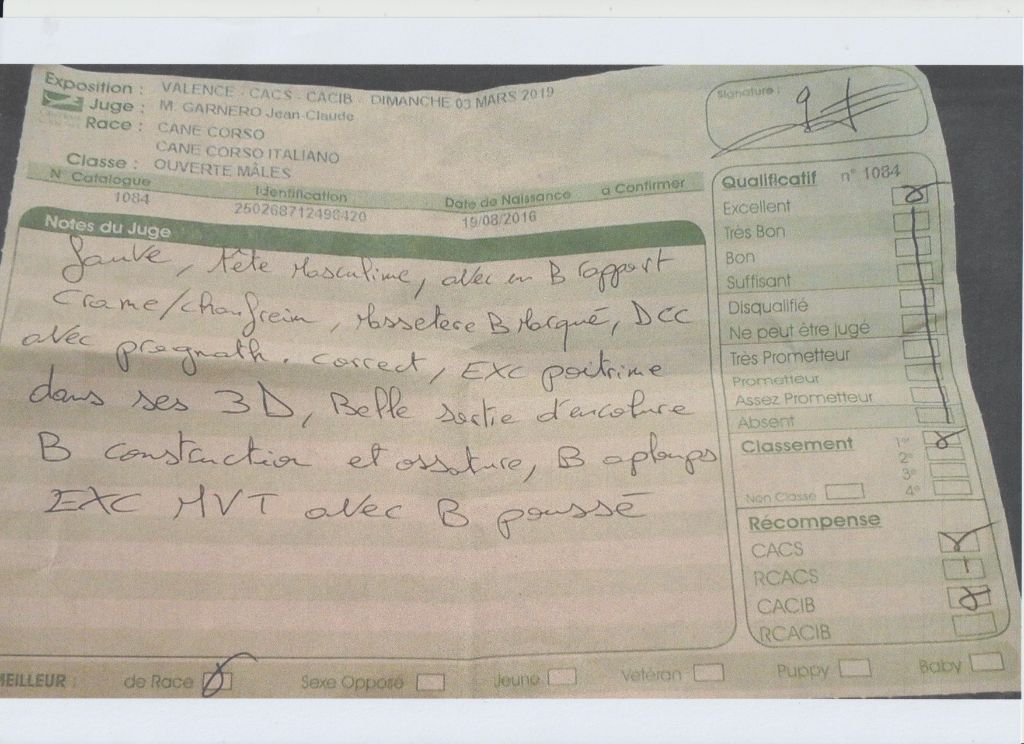 Exposition : VALENCE - CACS - CACIB - DIMANCHE 03 MARS 2019
Juge : M. GARNERO Jean-Claude
Race : CANE CORSO
CANE CORSO ITALIANO
Classe : OUVERTE MÂLES
N° Catalogue Identification Date de Naissance à Confirmer
1084 250268712498420 19/08/2016
Signature :
Notes du Juge
Fauve, tête Masculine, avec un B rapport
Crane/chanfrein, Massetere B Marqué, DCC
avec prognath. correct, EXC poitrine
dans ses 3D, Belle sortie d'encolure
B construction et ossature, B aplomps
EXC MVT avec B poussé
Qualificatif n° 1084
Excellent
Très Bon
Bon
Suffisant
Disqualifié
Ne peut être jugé
Très Prometteur
Prometteur
Assez Prometteur
Absent
Classement 1°
2°
3°
4°
Non Classé
Récompense
CACS
RCACS
CACIB
RCACIB
MEILLEUR : de Race Sexe Opposé Jeune Vétéran Puppy Baby